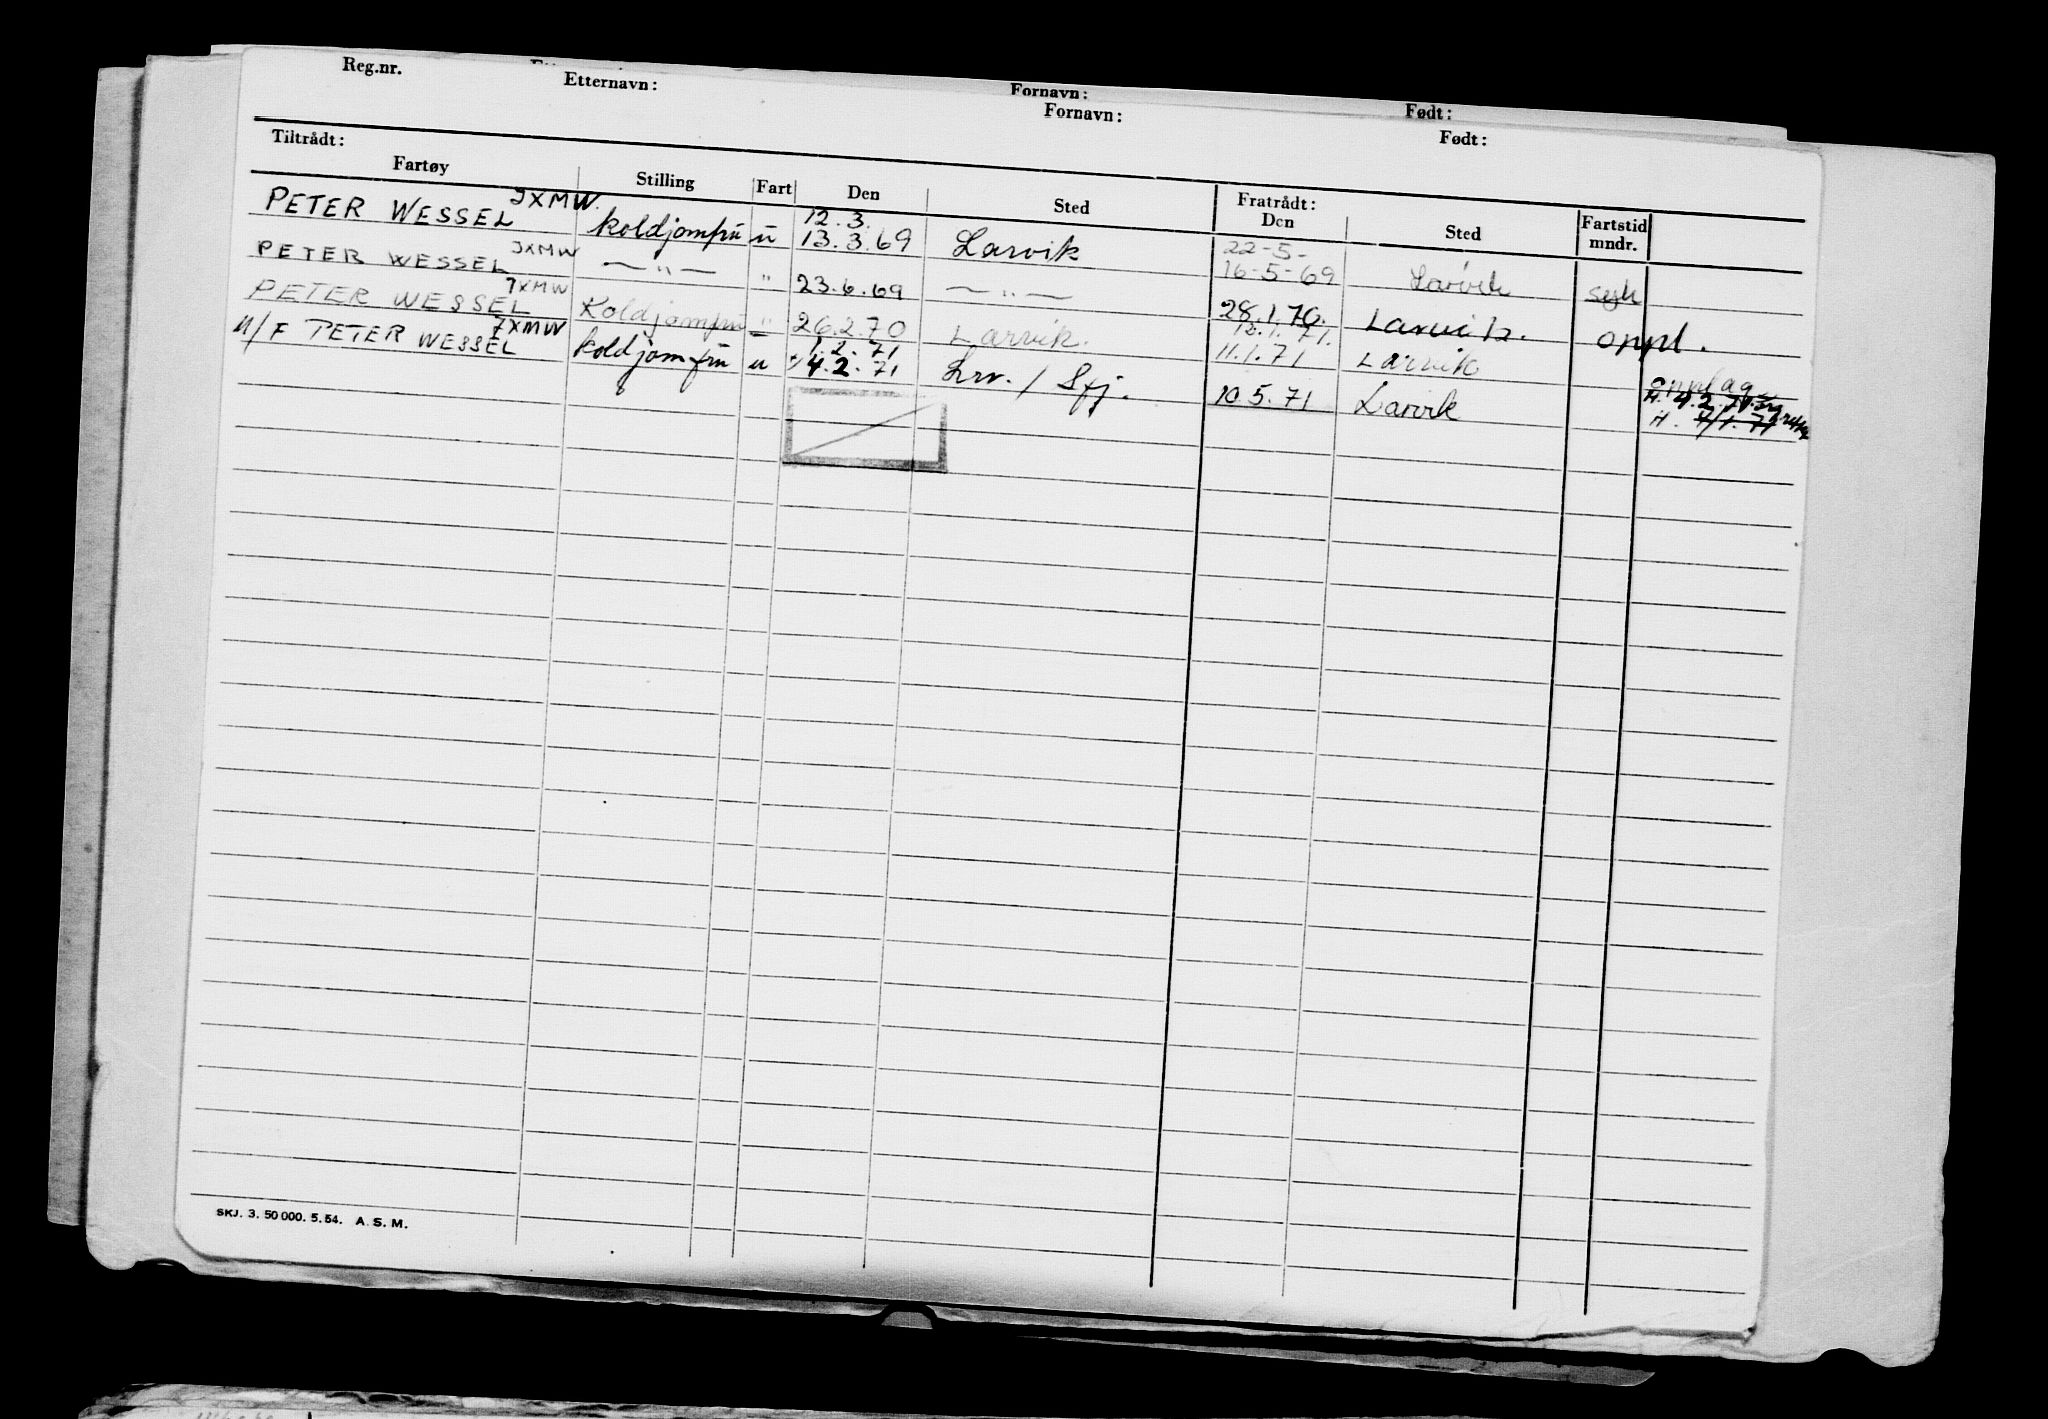 Reg.nr. Etternavn: Fornavn: Født:
Fornavn: Født:
Tiltrådt: Fratrådt:
Fartøy Stilling Fart Den Sted Den Sted Fartstid mndr.
PETER WESSEL JXMW. koldjomfru u 12.3. 13.3.69 Larvik 22-5- 16-5-69 Larvik syk
PETER WESSEL JXMW — " — " 23.6.69 — " — 28.1.70. Larvik. oppl.
PETER WESSEL JXMW Koldjomfru " 26.2.70 Larvik. 12.1.71. 11.1.71 Larvik opplag
M/F PETER WESSEL JXMW koldjomfru u 1.2.71 4.2.71 Lrv. / Sfj. 10.5.71 Larvik H. 4.2.71.
SKJ. 3. 50 000. 5. 54. A. S. M.